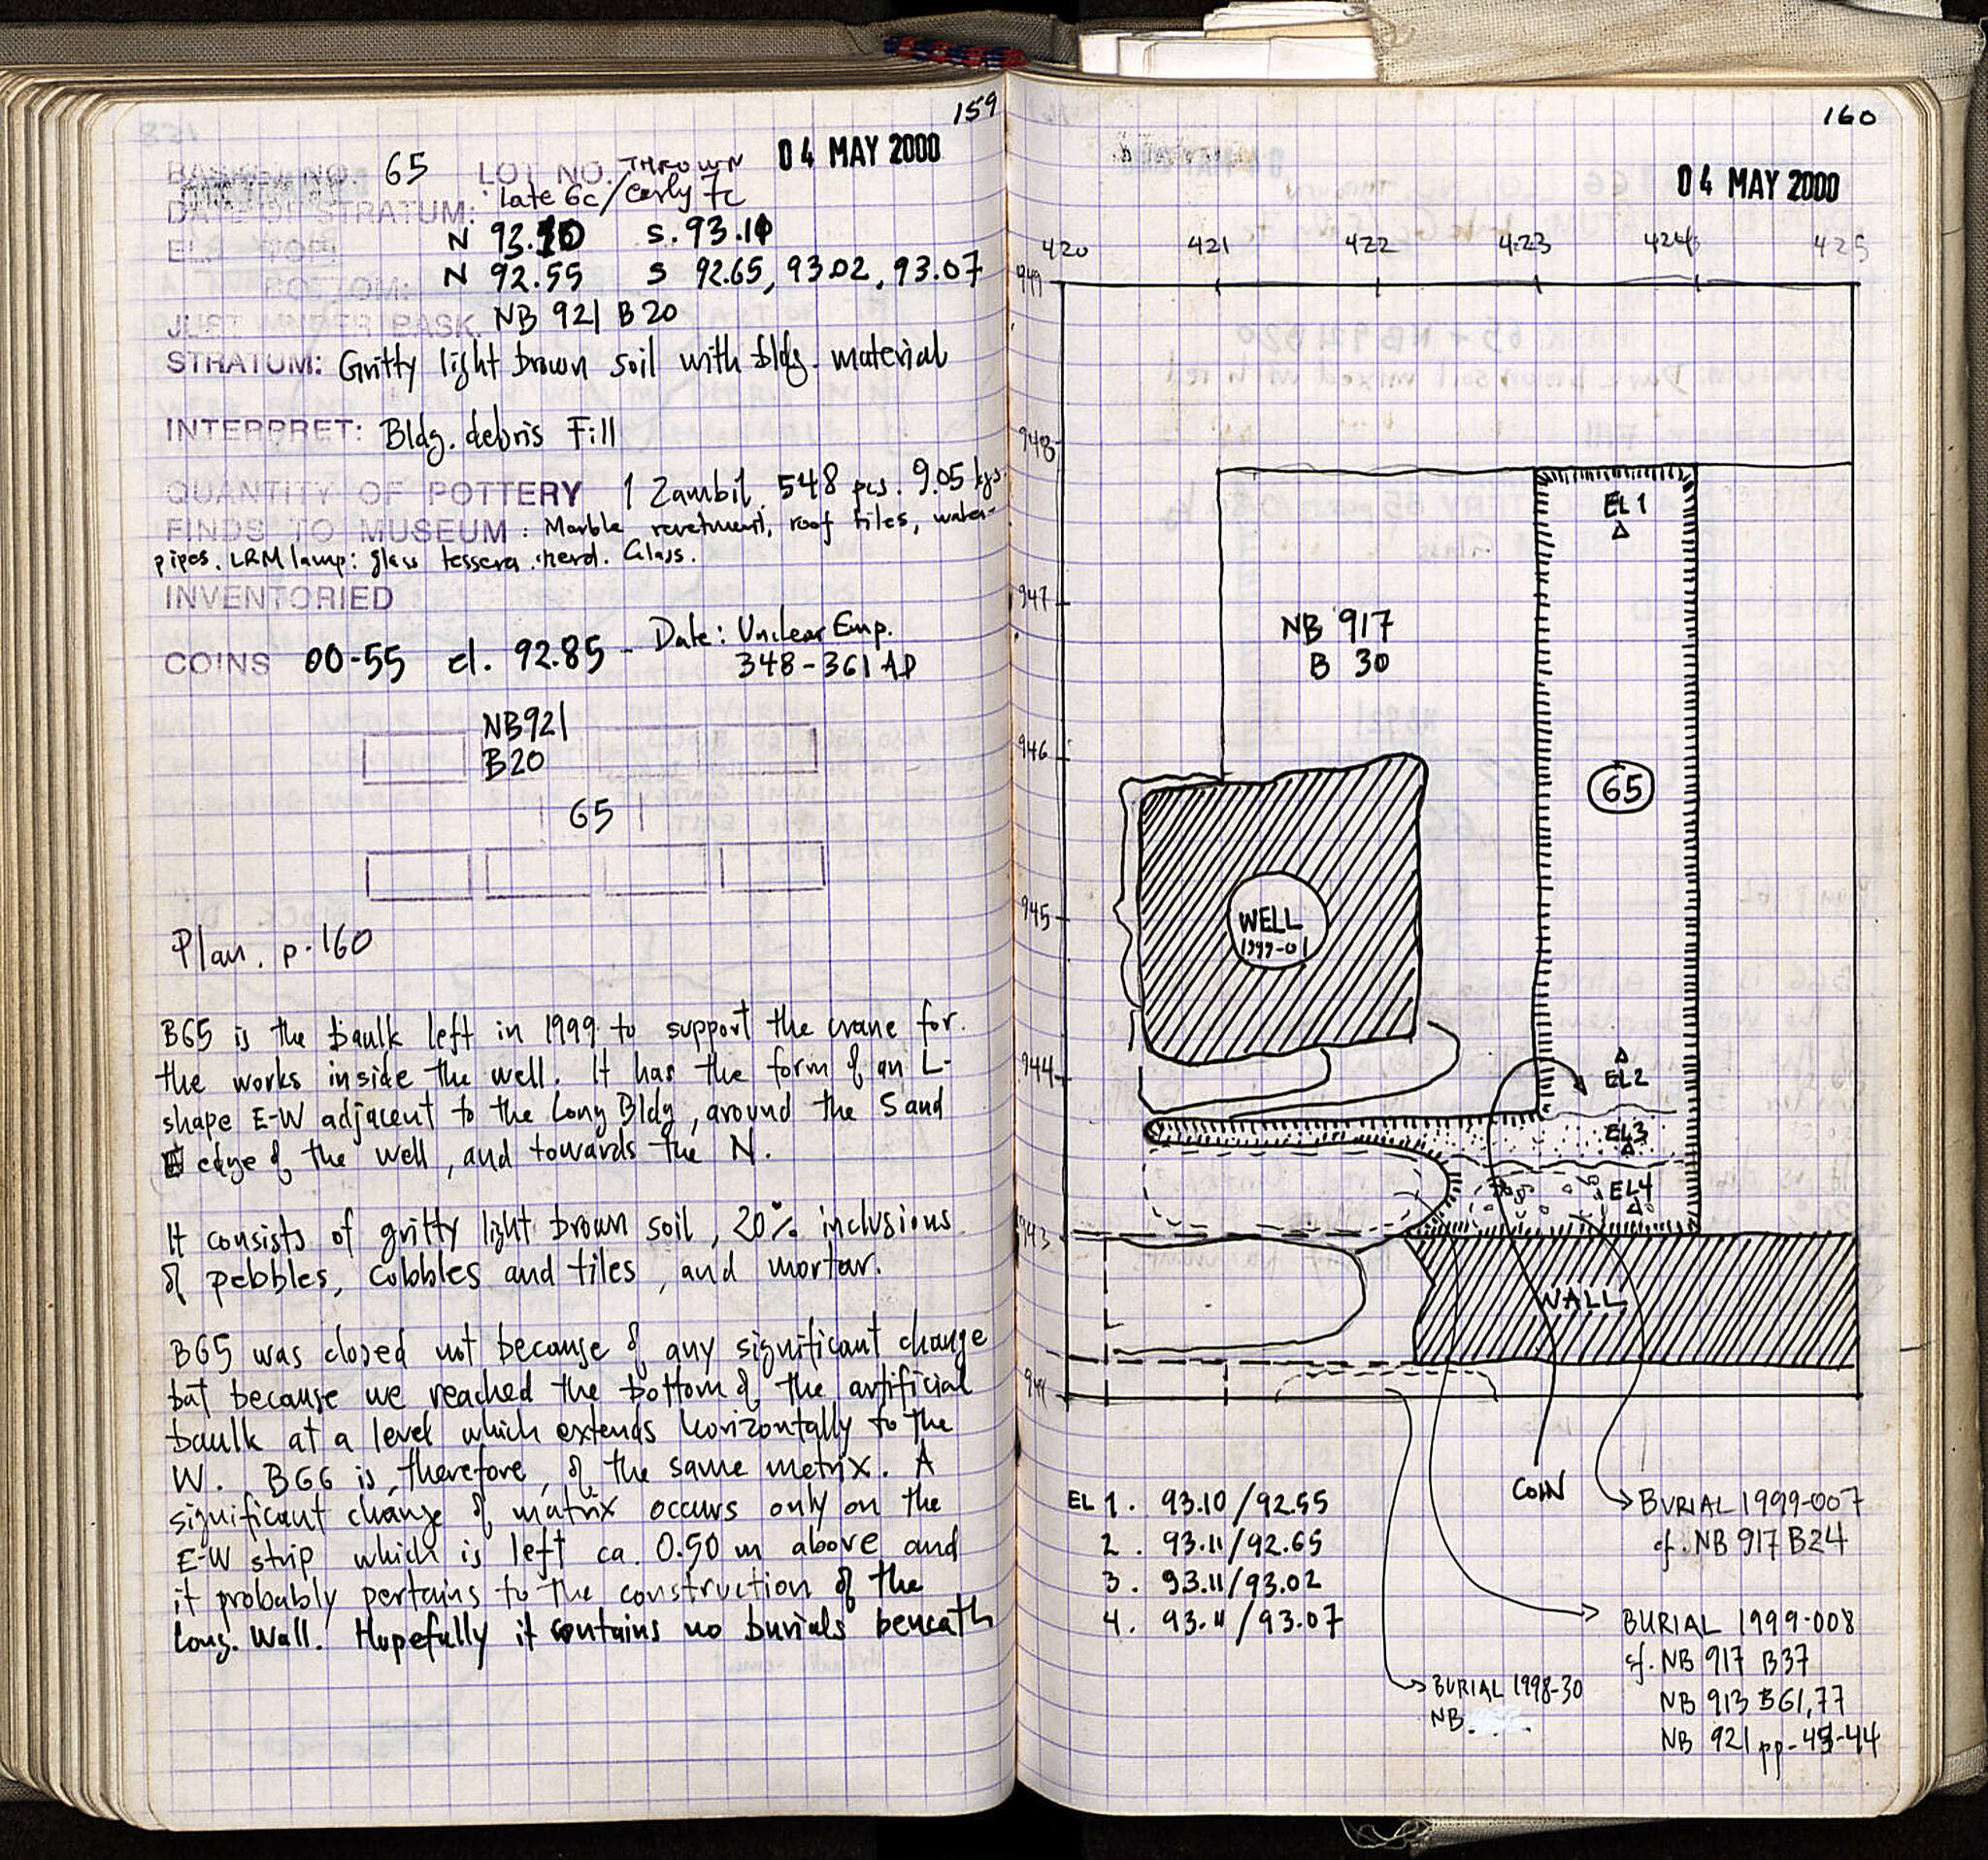 159
04 MAY 2000
BASKET NO. 65 LOT NO. THROWN
DATE OF STRATUM: Late 6c/Early 7c
EL. TOP: N 93.10 S. 93.11
BOTTOM: N 92.55 S 92.65, 93.02, 93.07
JUST UNDER BASK. NB 921 B20
STRATUM: Gritty light brown soil with bldg. material
INTERPRET: Bldg. debris Fill
QUANTITY OF POTTERY 1 Zambil, 548 pcs. 9.05 kgs.
FINDS TO MUSEUM: Marble revetment, roof tiles, water-
pipes. LRM lamp: glass tessera. Glass.
INVENTORIED
COINS 00-55 el. 92.85 - Date: Unclear Emp.
348-361 AD
NB921
B20
65
Plan. p. 160
B65 is the baulk left in 1999 to support the crane for
the works inside the well. It has the form of an L-
shape E-W adjacent to the Long Bldg, around the S and
E edge of the well, and towards the N.
It consists of gritty light brown soil, 20% inclusions
of pebbles, cobbles and tiles, and mortar.
B65 was closed not because of any significant change
but because we reached the bottom of the artificial
baulk at a level which extends horizontally to the
W. B66 is, therefore, of the same metrix. A
significant change of matrix occurs only on the
E-W strip which is left ca. 0.50 m above and
it probably pertains to the construction of the
Long. Wall. Hopefully it contains no burials beneath
160
04 MAY 2000
420 421 422 423 424 425
949
948
EL1
947
NB 917
B 30
946
65
945
WELL
1999-01
944
EL2
EL3
EL4
943
WALL
COIN
EL 1. 93.10/92.55
2. 93.11/92.65
3. 93.11/93.02
4. 93.11/93.07
BURIAL 1999-007
cf. NB 917 B24
BURIAL 1999-008
cf. NB 917 B37
NB 913 B61,77
NB 921 pp-43-44
BURIAL 1998-30
NB.